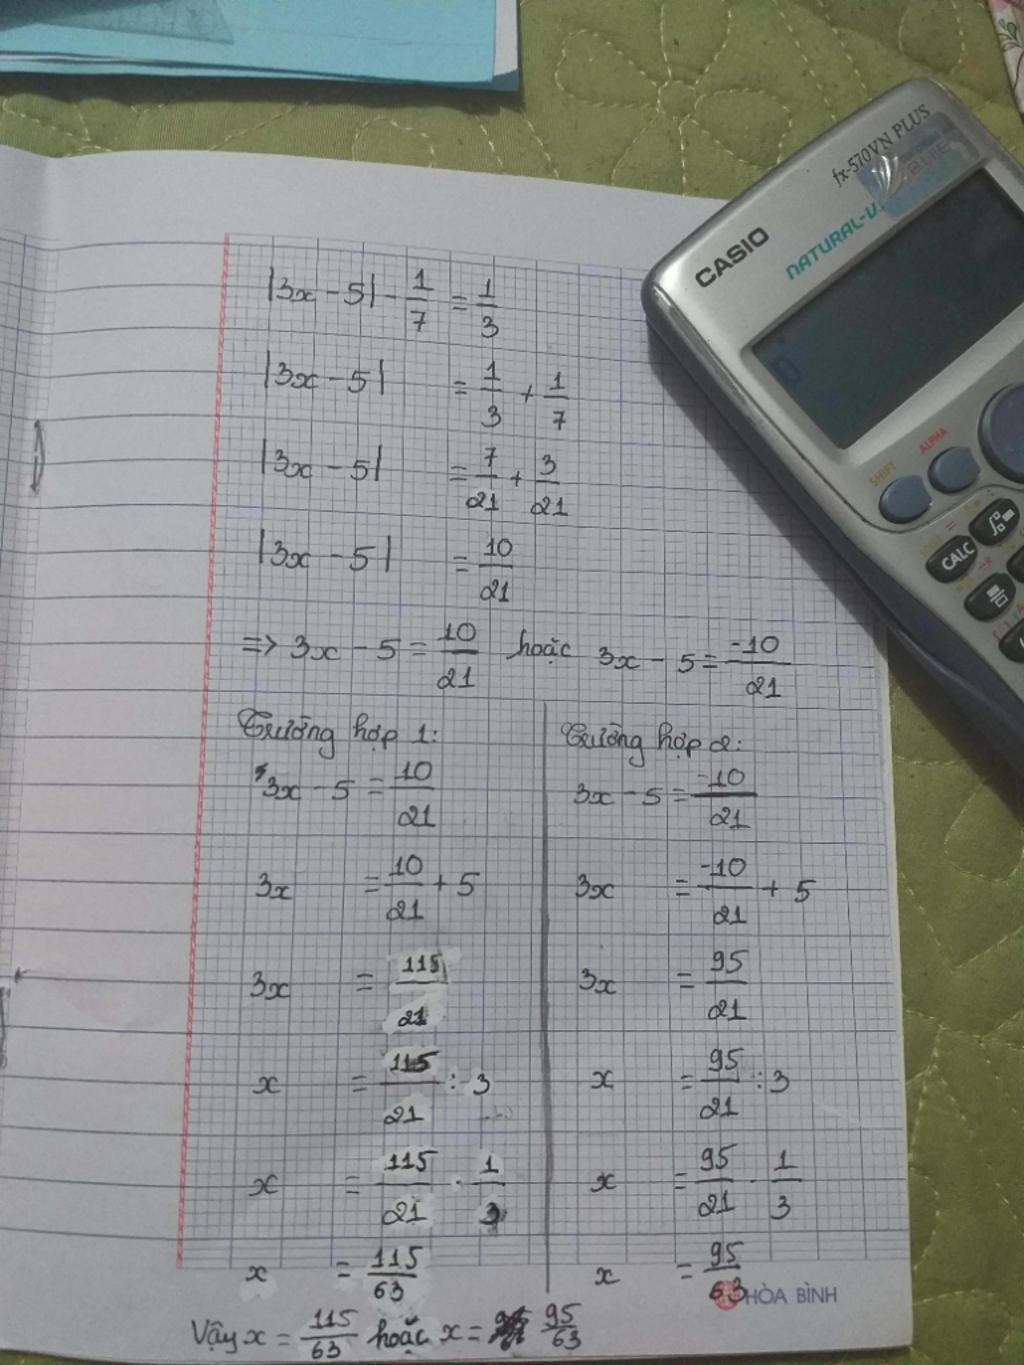 fx-570VN PLUS
CASIO
NATURAL-V
SHIFT
ALPHA
CALC
|3x - 5| - 1/7 = 1/3
|3x - 5| = 1/3 + 1/7
|3x - 5| = 7/21 + 3/21
|3x - 5| = 10/21
=> 3x - 5 = 10/21 hoặc 3x - 5 = -10/21
Trường hợp 1:
3x - 5 = 10/21
3x = 10/21 + 5
3x = 115/21
x = 115/21 : 3
x = 115/21 . 1/3
x = 115/63
Trường hợp 2:
3x - 5 = -10/21
3x = -10/21 + 5
3x = 95/21
x = 95/21 : 3
x = 95/21 . 1/3
x = 95/63
HÒA BÌNH
Vậy x = 115/63 hoặc x = 95/63